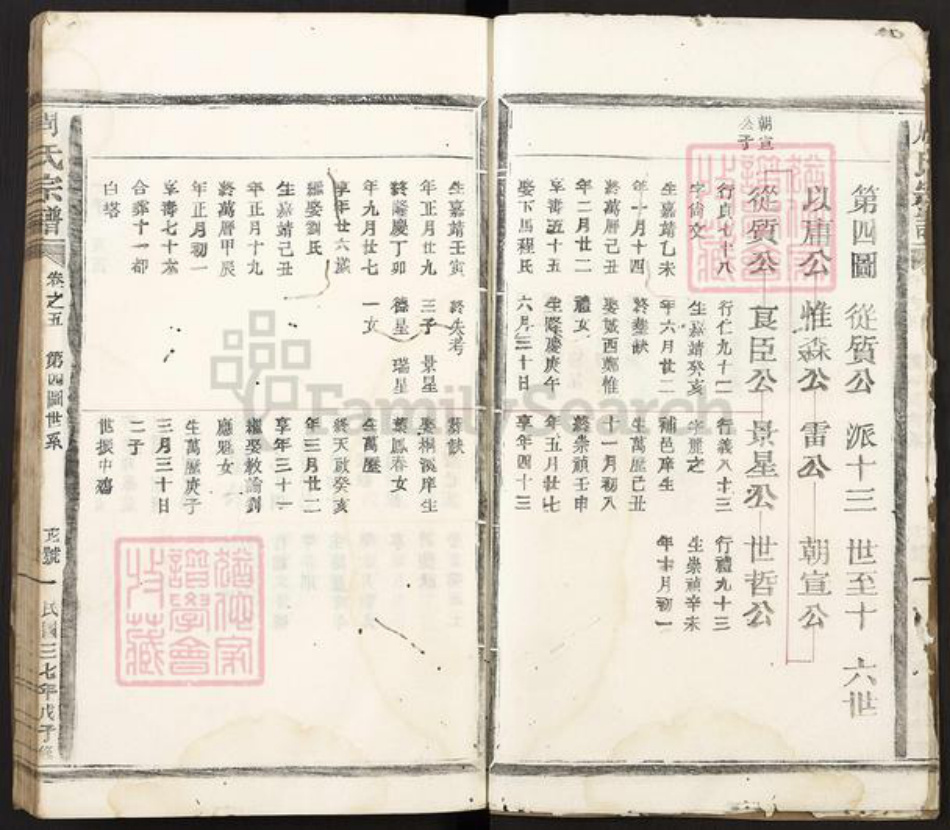 第四圖 從質公 派十三 世至十 六世
以庸公 惟森公 雷公 朝宣公
朝宣
公子
從質公 良臣公 景星公 世哲公
行貞七十八
字尚文
生嘉靖乙未
年十一月十四
終萬曆己丑
年二月廿二
享壽五十五
娶下馬程氏
生嘉靖壬寅
年正月廿九
終隆慶丁卯
年九月廿七
享年廿六歲
繼娶劉氏
生嘉靖己丑
年正月十九
終萬曆甲辰
年正月初一
享壽七十六
合葬十一都
白塔
行仁九十二
生嘉靖癸亥
年六月廿二
終
娶城西鄭惟
禮女
生隆慶庚午
六月三十日
終失考
三子 景星
德星 瑞星
一女
行義八十三
字麗之
補邑庠生
生萬曆己丑
十一月初八
終崇禎壬申
年五月廿七
享年四十三
娶桐溪庠生
葉鳳春女
生萬曆
終天啟癸亥
年三月廿二
享年三十一
繼娶教諭劉
應魁女
生萬曆庚子
三月三十日
二子
世振中殤
行禮九十三
生崇禎辛未
年十月初一
周氏宗譜 卷之五 第四圖世系 民國三七年戊子
周氏宗譜
FamilySearch